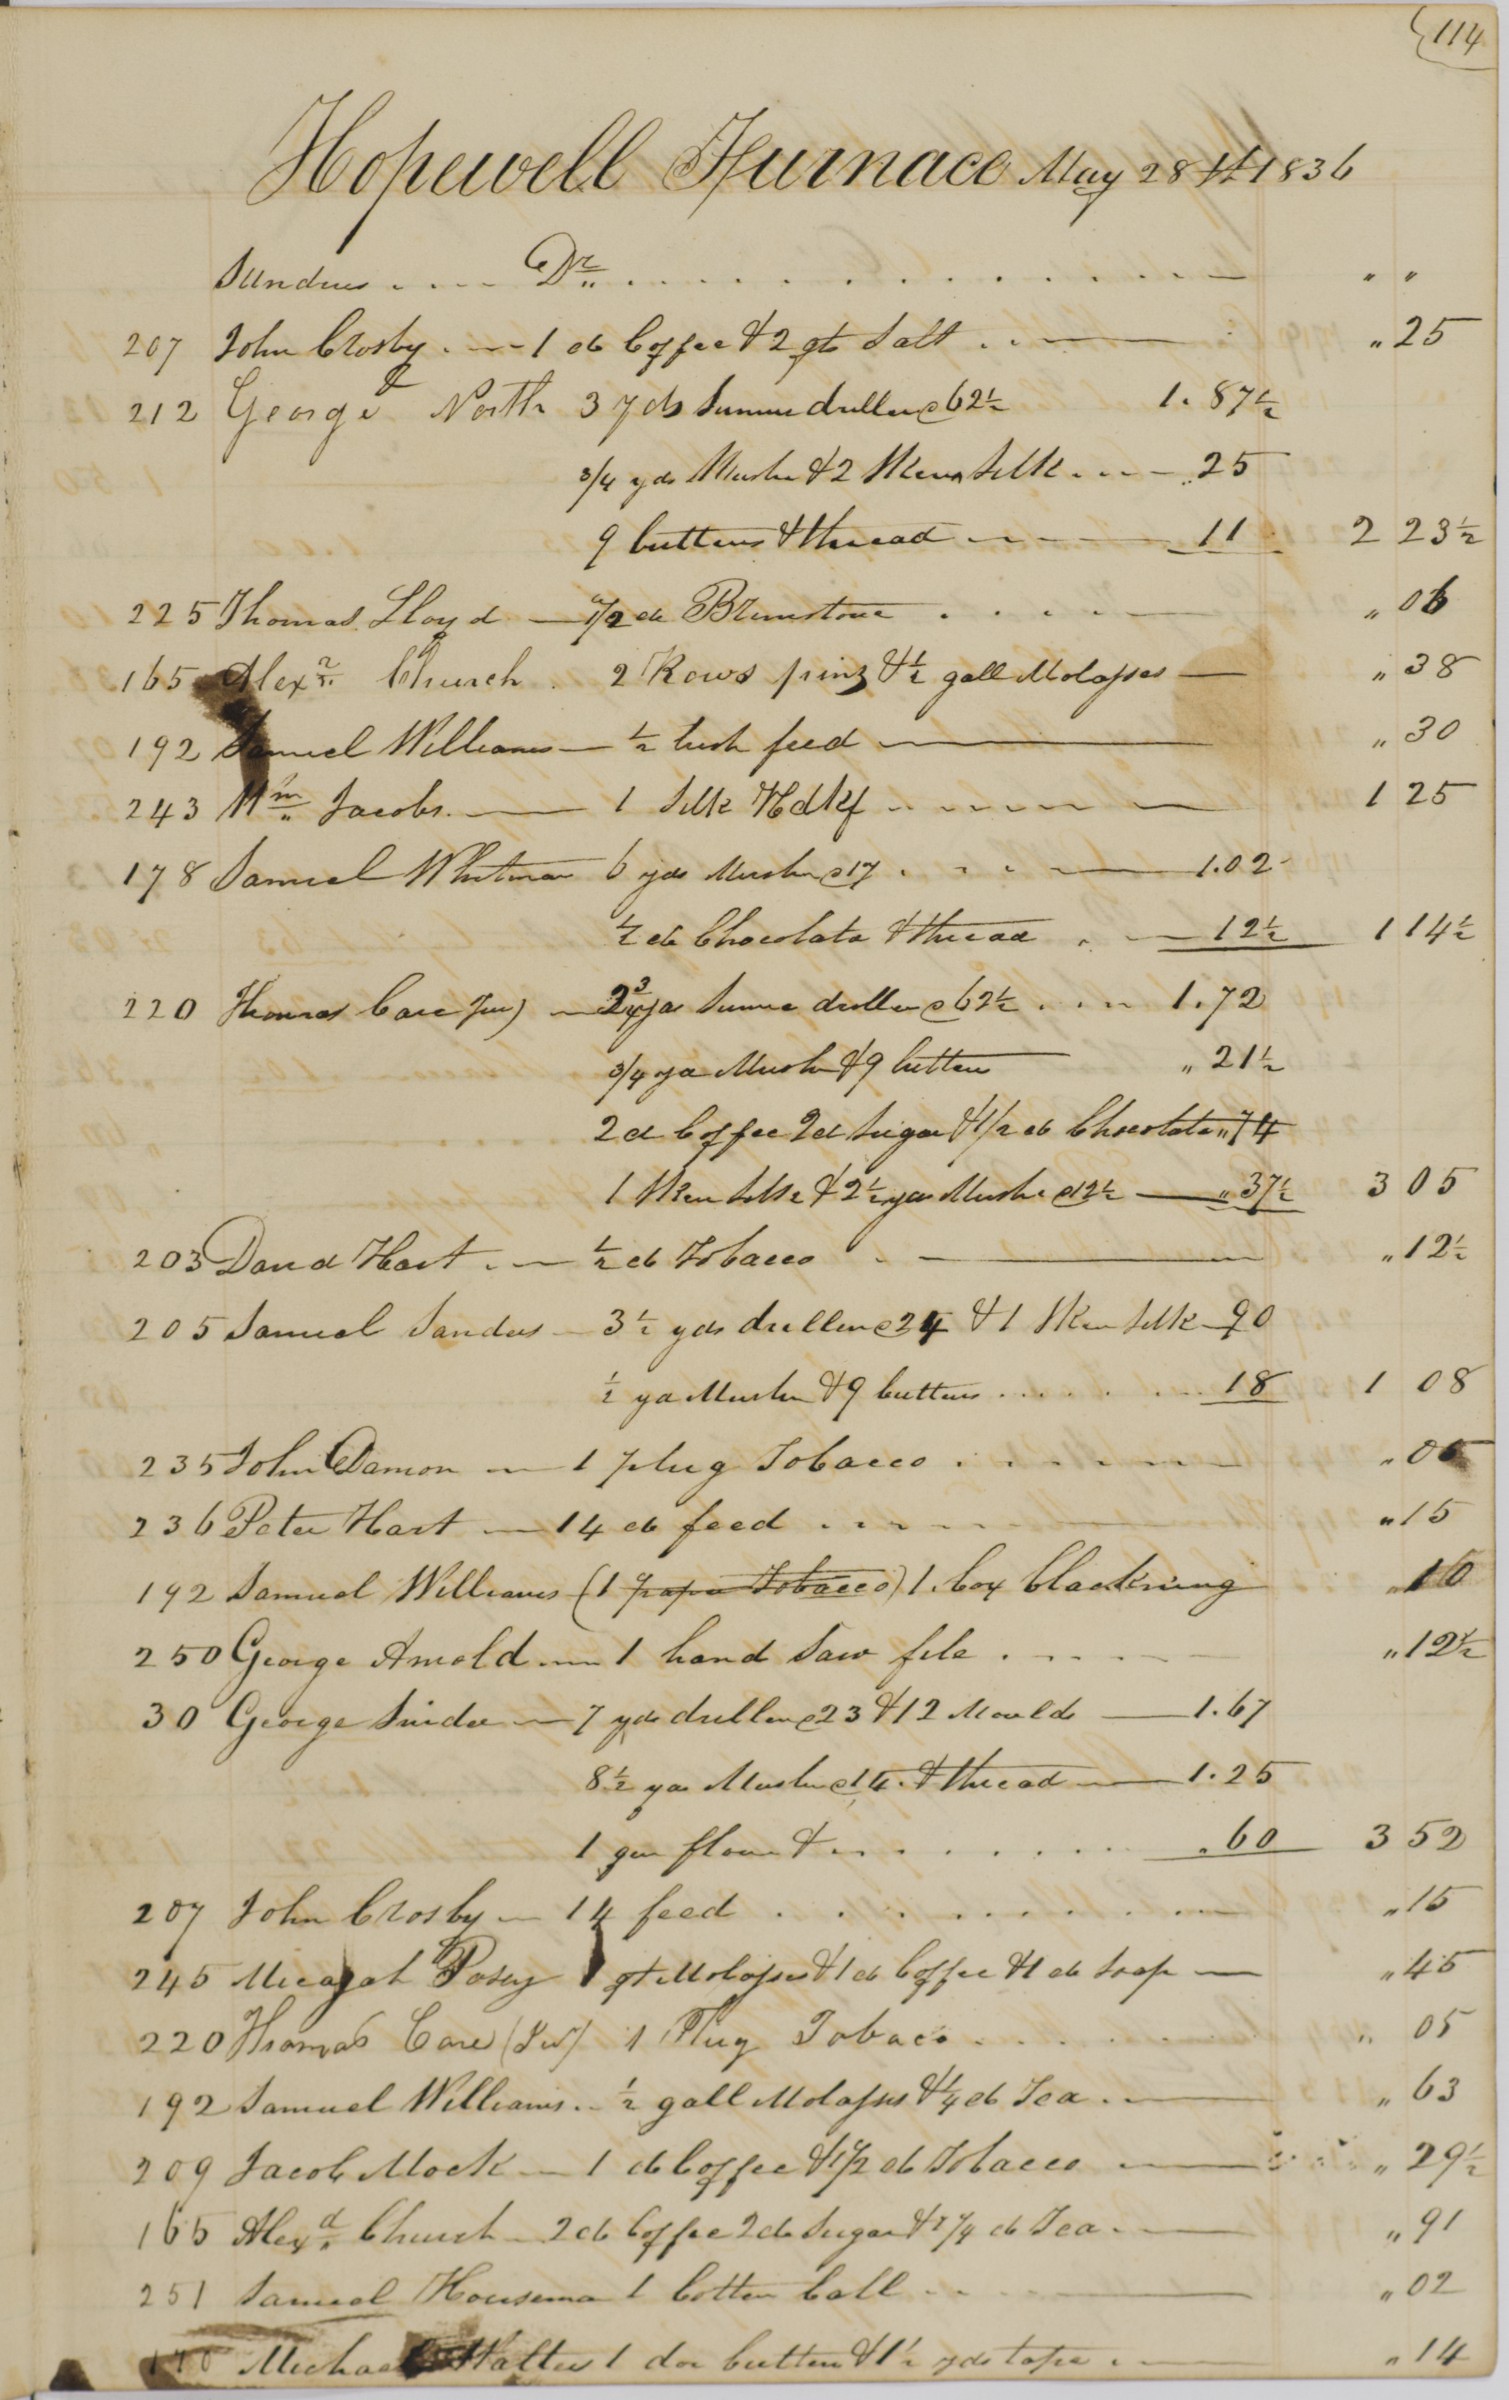 114
Hopewell Furnace May 28th 1836
Sundries .... Dr. .... " "
207 John Crosby . — 1 lb Coffee & 2 qts Salt . . — " 25
212 George North 3 yds Summer drilling @ 62½ 1. 87½
3/4 yds Muslin & 2 Skeins Silk . . . — . 25
9 buttons & thread — 11 2 23½
225 Thomas Lloyd — 1/2 lb Brimstone . . . . — " 06
165 Alexr. Church . 2 Rows pins & ½ gall Molasses — " 38
192 Samuel Williams — ½ bush feed — " 30
243 Wm. Jacobs. — 1 Silk Hdkf . . — 1 25
178 Samuel Whitman 6 yds Muslin @ 17 . . . — 1.02
½ lb Chocolate & thread . — 12½ 1 14½
220 Thomas Care Jur) — 2¾ yds Summer drilling @ 62½ . . . 1.72
3/4 yd Muslin & 9 buttons " 21½
2 lb Coffee 2 lb Sugar & 1/2 lb Chocolate " 74
1 Skein Silk & 2½ yds Muslin @ 12½ — " 37½ 3 05
203 David Hart . — ½ lb Tobacco . — " 12½
205 Samuel Sanders — 3½ yds drilling @ 24 & 1 Skein Silk — 90
½ yd Muslin & 9 buttons . . . . . 18 1 08
235 John Damon — 1 plug Tobacco . . . . — " 06
236 Peter Hart — 14 lb feed . . . — " 15
192 Samuel Williams (1 paper Tobacco) 1. box Blackning " 10
250 George Arnold — 1 hand Saw file . . . . — " 12½
30 George Snider — 7 yds drilling @ 23 & 12 Moulds — 1.67
8½ yds Muslin @ 14. & thread — 1.25
1 qur flour & . . . . . . . 60 3 52
207 John Crosby — 14 feed . . . . . . . — " 15
245 Micajah Posey 1 qt Molasses & 1 lb Coffee & 1 lb Soap — " 45
220 Thomas Care (Jur) 1 Plug Tobaco . . . . . " 05
192 Samuel Williams . . ½ gall Molasses & ¼ lb Tea . — " 63
209 Jacob Mock — 1 lb Coffee & 1/2 lb Tobacco — " 29½
165 Alexd. Church — 2 lb Coffee 2 lb Sugar & 1/4 lb Tea . — " 91
251 Samuel Houseman 1 Cotten ball . . — " 02
Michael Walters 1 doz buttons & 1½ yds tape . — " 14